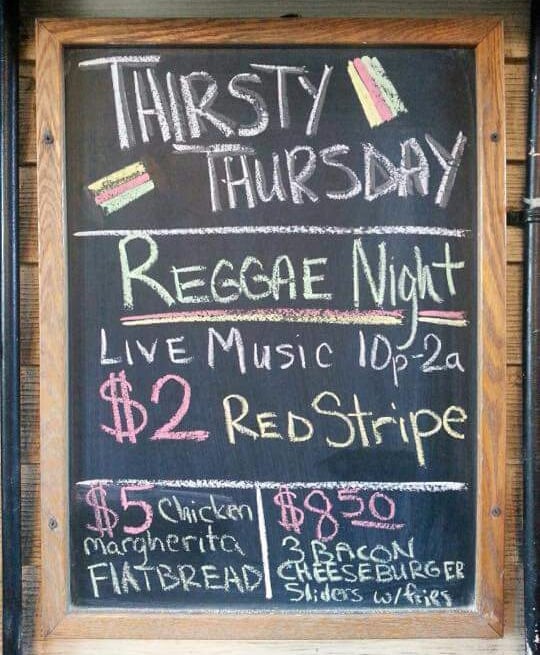 THIRSTY
THURSDAY
REGGAE Night
LIVE Music 10p-2a
$2 RED Stripe
$5 Chicken
margherita
FlATBREAD
$8 50
3 BACON
CHEESEBURGER
Sliders w/fries